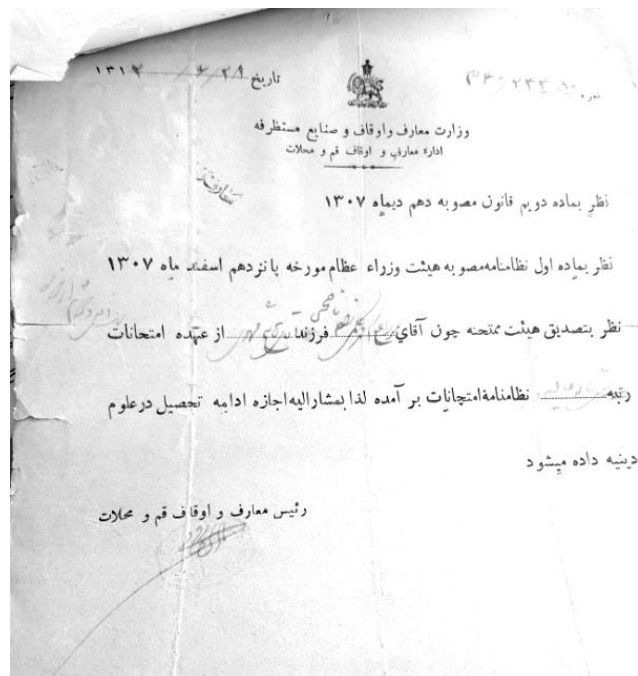 تاریخ ۲۸ / ۶ / ۱۳۱۴
نمره
وزارت معارف و اوقاف و صنایع مستظرفه
اداره معارف و اوقاف قم و محلات
نظر بماده دویم قانون مصوبه دهم دیماه ۱۳۰۷
نظر بماده اول نظامنامه مصوبه هیئت وزراء عظام مورخه پانزدهم اسفند ماه ۱۳۰۷
نظر بتصدیق هیئت ممتحنه چون آقای فرزند از عهده امتحانات
رتبه نظامنامة امتحانات بر آمده لذا بمشارالیه اجازه ادامه تحصیل در علوم
دینیه داده میشود
رئیس معارف و اوقاف قم و محلات